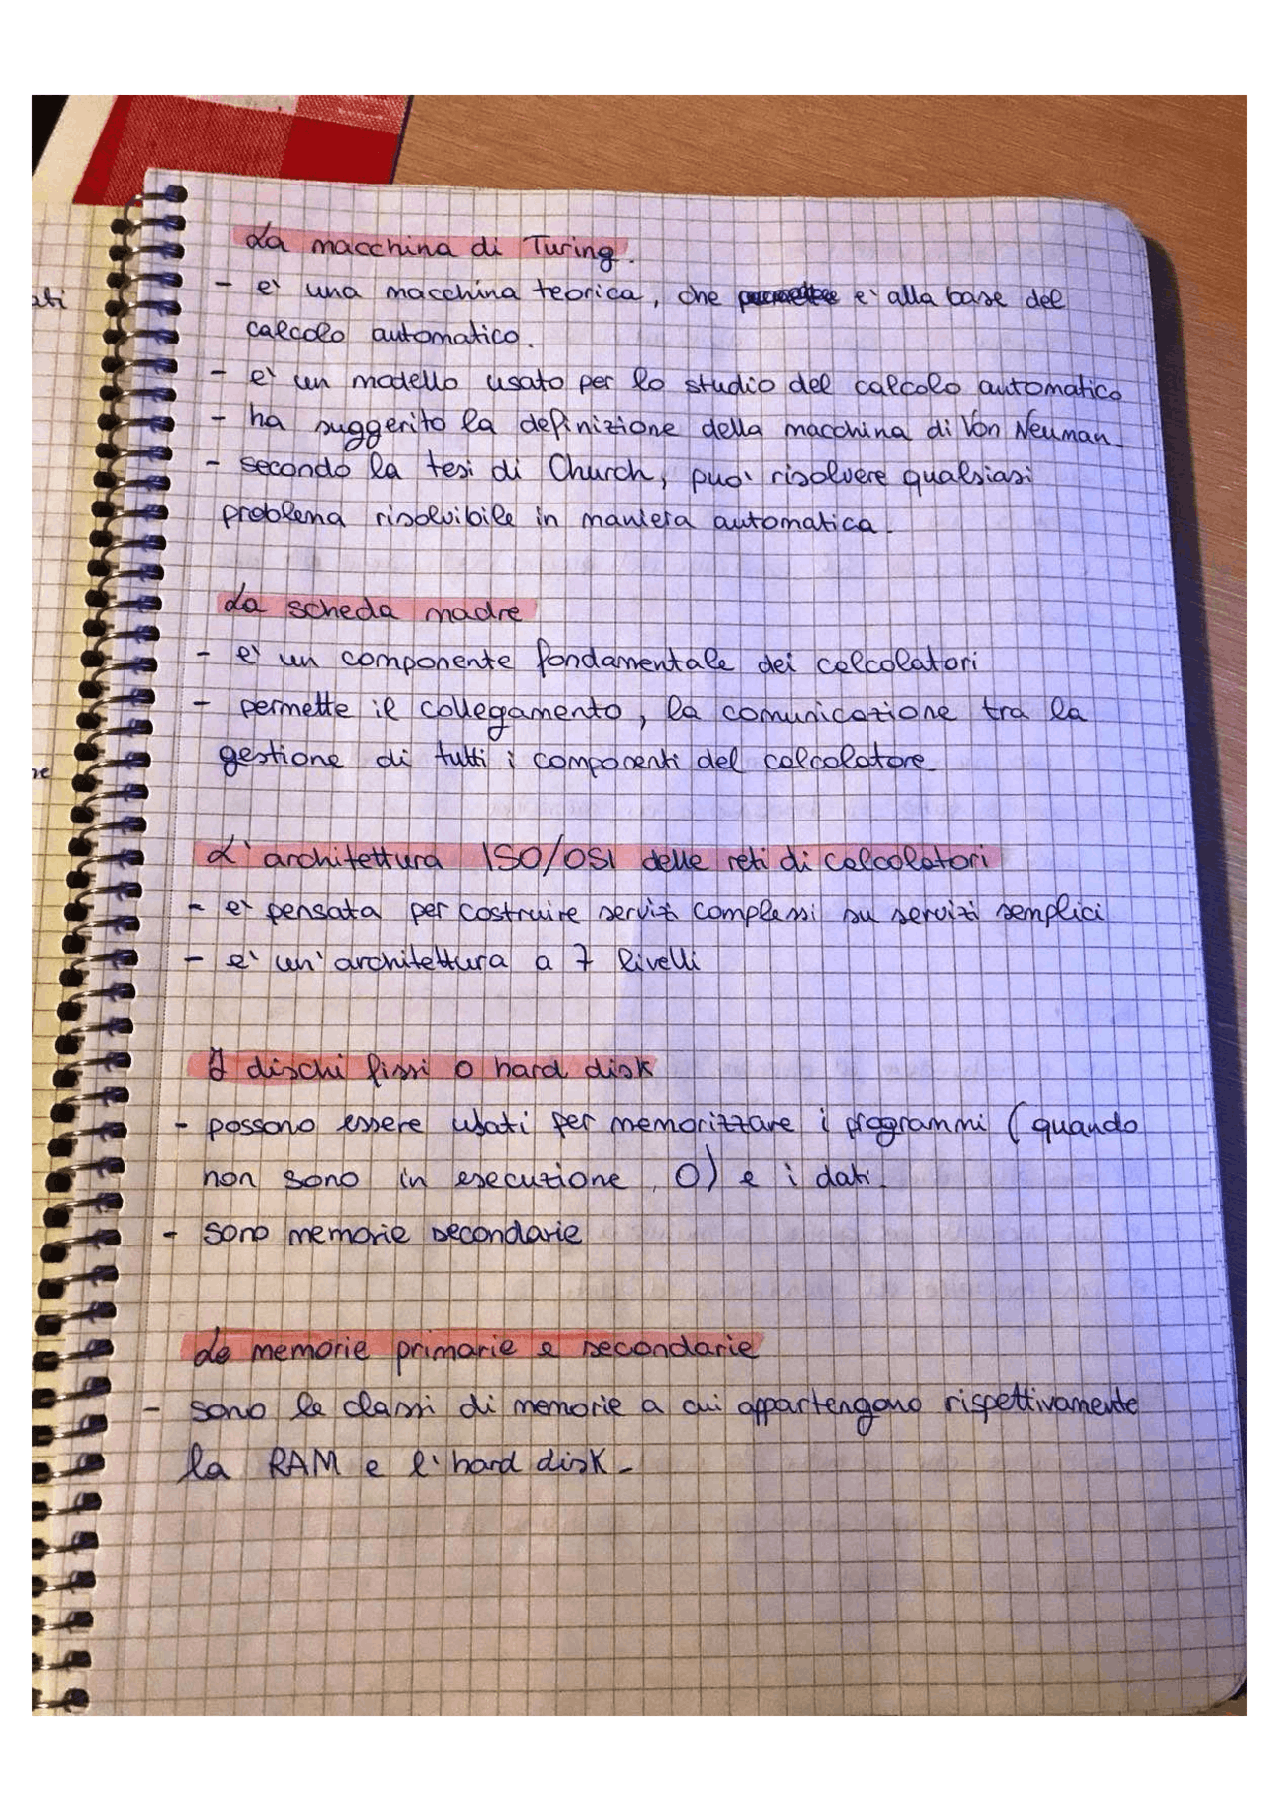 La macchina di Turing.
- e' una macchina teorica, che e' alla base del
calcolo automatico.
- e' un modello usato per lo studio del calcolo automatico
- ha suggerito la definizione della macchina di Von Neuman
- secondo la tesi di Church, puo' risolvere qualsiasi
problema risolvibile in maniera automatica.
La scheda madre
- e' un componente fondamentale dei calcolatori
- permette il collegamento, la comunicazione tra la
gestione di tutti i componenti del calcolatore
L'architettura ISO/OSI delle reti di calcolatori
- e' pensata per costruire servizi complessi su servizi semplici
- e' un'architettura a 7 livelli
I dischi fissi o hard disk
- possono essere usati per memorizzare i programmi (quando
non sono in esecuzione, O) e i dati.
- sono memorie secondarie
Le memorie primarie e secondarie
- sono le classi di memorie a cui appartengono rispettivamente
la RAM e l'hard disk.